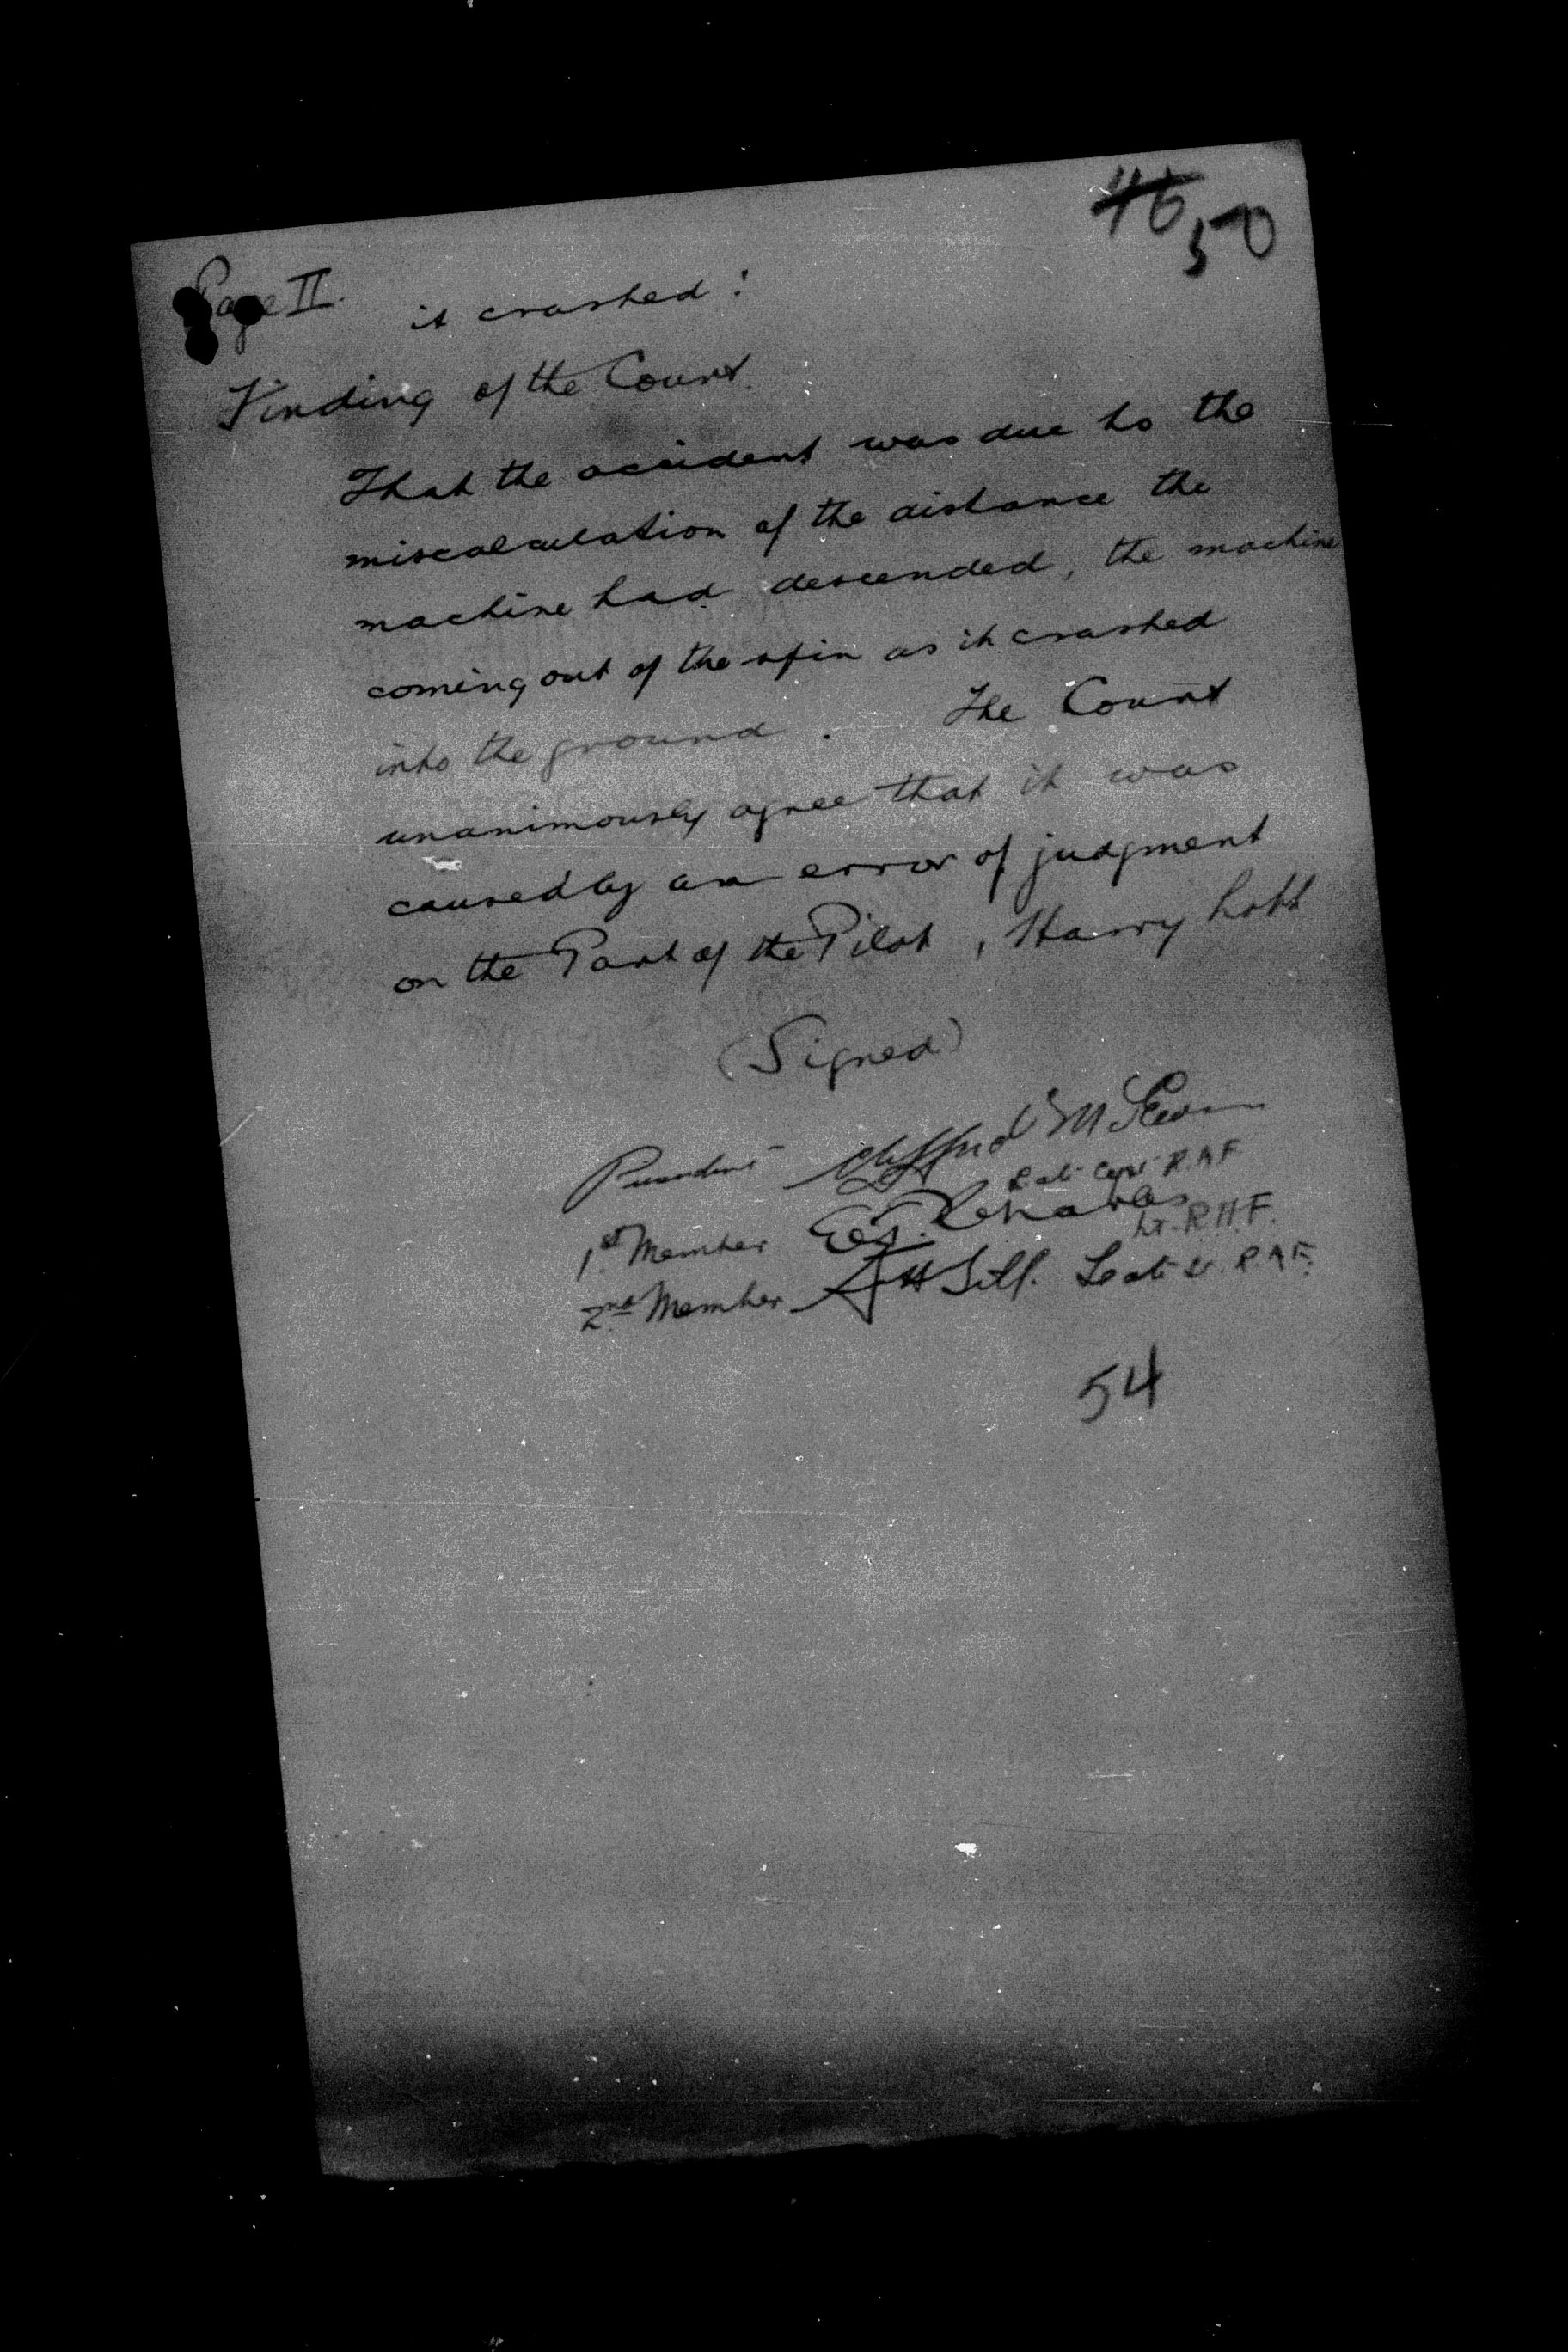 46 50
Page II. it crashed!
Finding of the Court.
That the accident was due to the
miscalculation of the distance the
machine had descended, the machine
coming out of the spin as it crashed
into the ground. The Court
unanimously agree that it was
caused by an error of judgment
on the Part of the Pilot, Harry Lott
(Signed)
President Clifford McEwen
Capt R.A.F.
1st Member Charles
Lt. R.A.F.
2nd Member Lt. R.A.F.
54